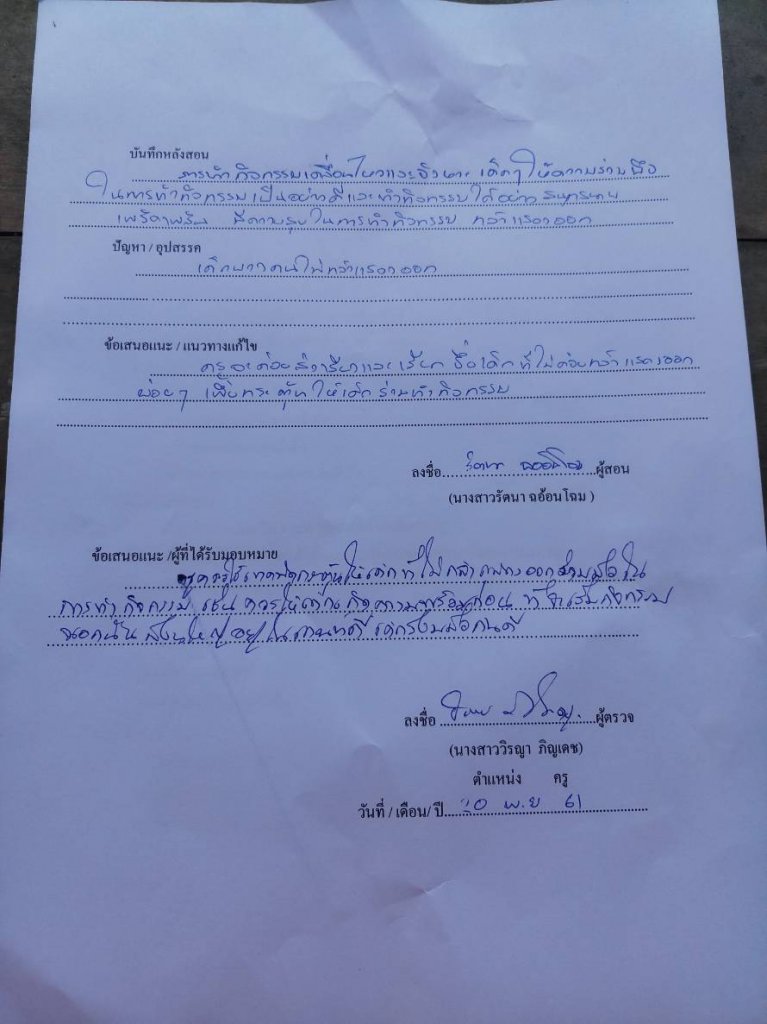 บันทึกหลังสอน
การทำกิจกรรมเคลื่อนไหวและจังหวะ เด็กๆ ให้ความร่วมมือ
ในการทำกิจกรรมเป็นอย่างดีและทำกิจกรรมได้อย่าง สนุกสนาน
เพลิดเพลิน มีความสุขในการทำกิจกรรม กล้าแสดงออก
ปัญหา / อุปสรรค
เด็กบางคนไม่กล้าแสดงออก
ข้อเสนอแนะ / แนวทางแก้ไข
ครูจะค่อยส่งเสียงและเรียก ชื่อเด็กที่ไม่ค่อยกล้าแสดงออก
บ่อยๆ เพื่อกระตุ้นให้เด็กร่วมทำกิจกรรม
ลงชื่อ ผู้สอน
(นางสาวรัตนา ฉอ้อนโฉม )
ข้อเสนอแนะ /ผู้ที่ได้รับมอบหมาย
ให้เด็กที่ไม่กล้าแสดงออก ใน
การทำกิจกรรม เช่น ควรให้ ก่อน ที่จะเริ่มกิจกรรม
นอกนั้น ส่วนใหญ่อยู่ในเกณฑ์ดี
ลงชื่อ ผู้ตรวจ
(นางสาววิรญา ภิญเดช)
ตำแหน่ง ครู
วันที่ / เดือน/ ปี 20 พ.ย 61